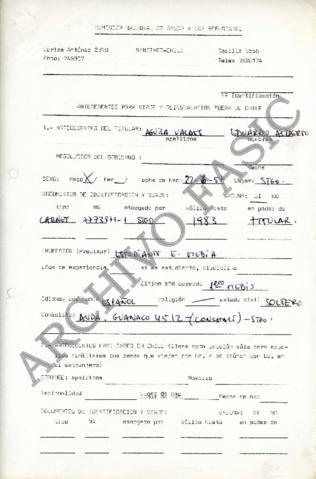 COMISION NACIONAL DE AYUDA A LOS REFUGIADOS
SANTIAGO-CHILE Casilla
Fono: Telex
Nº Identificación
ANTECEDENTES PARA VIAJE Y REINSTALACION FUERA DE CHILE
1.- ANTECEDENTES DEL TITULAR: AGUILA VALDES EDUARDO ALBERTO
Apellidos Nombres
RESOLUCION DEL GOBIERNO:
Fecha
SEXO: Masc X Fem Fecha de Nac: Lugar: STGO.
DOCUMENTOS DE IDENTIFICACION Y VIAJE: VACUNA: SI NO
tipo Nº otorgado por válido hasta en poder de
CARNET STGO 1983 TITULAR.
ESTUDIANTE E. MEDIA
Años de experiencia, si es estudiante, disciplina
Último año cursado 1ERO MEDIO
Idiomas ESPAÑOL religión estado civil SOLTERO
Domicilio: AVDA. GUANACO 4512 (CONCHALI) - STGO.
ANTECEDENTES FAMILIARES EN CHILE (llene esta sección sólo para aquellos familiares que desea que viajen con Ud. o se reúnan con Ud. en el extranjero)
CONYUGE: Apellidos Nombres
Nacionalidad Fecha de nac
DOCUMENTOS DE IDENTIFICACION Y VIAJE: VACUNA: SI NO
tipo Nº otorgado por válido hasta en poder de
ARCHIVO FASIC